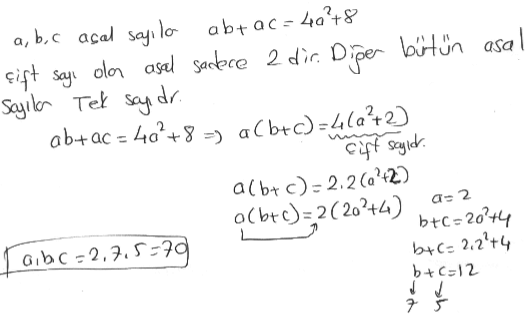 a,b,c asal sayılar ab+ac=4a²+8
Çift sayı olan asal sadece 2 dir. Diğer bütün asal
Sayılar Tek sayıdır.
ab+ac=4a²+8 => a(b+c)=4(a²+2)
Çift sayıdır.
a(b+c)=2.2(a²+2)
a(b+c)=2(2a²+4)
a=2
b+c=2a²+4
b+c=2.2²+4
b+c=12
↓ ↓
7 5
a.b.c=2.7.5=70